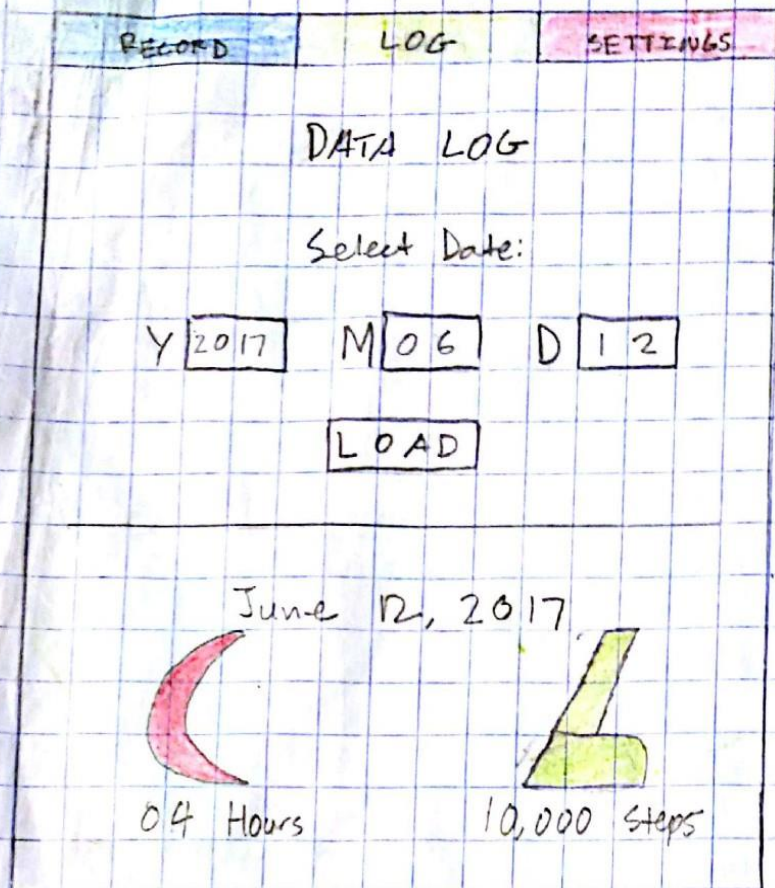 RECORD LOG SETTINGS
DATA LOG
Select Date:
Y 2017 M 06 D 12
LOAD
June 12, 2017
04 Hours 10,000 Steps